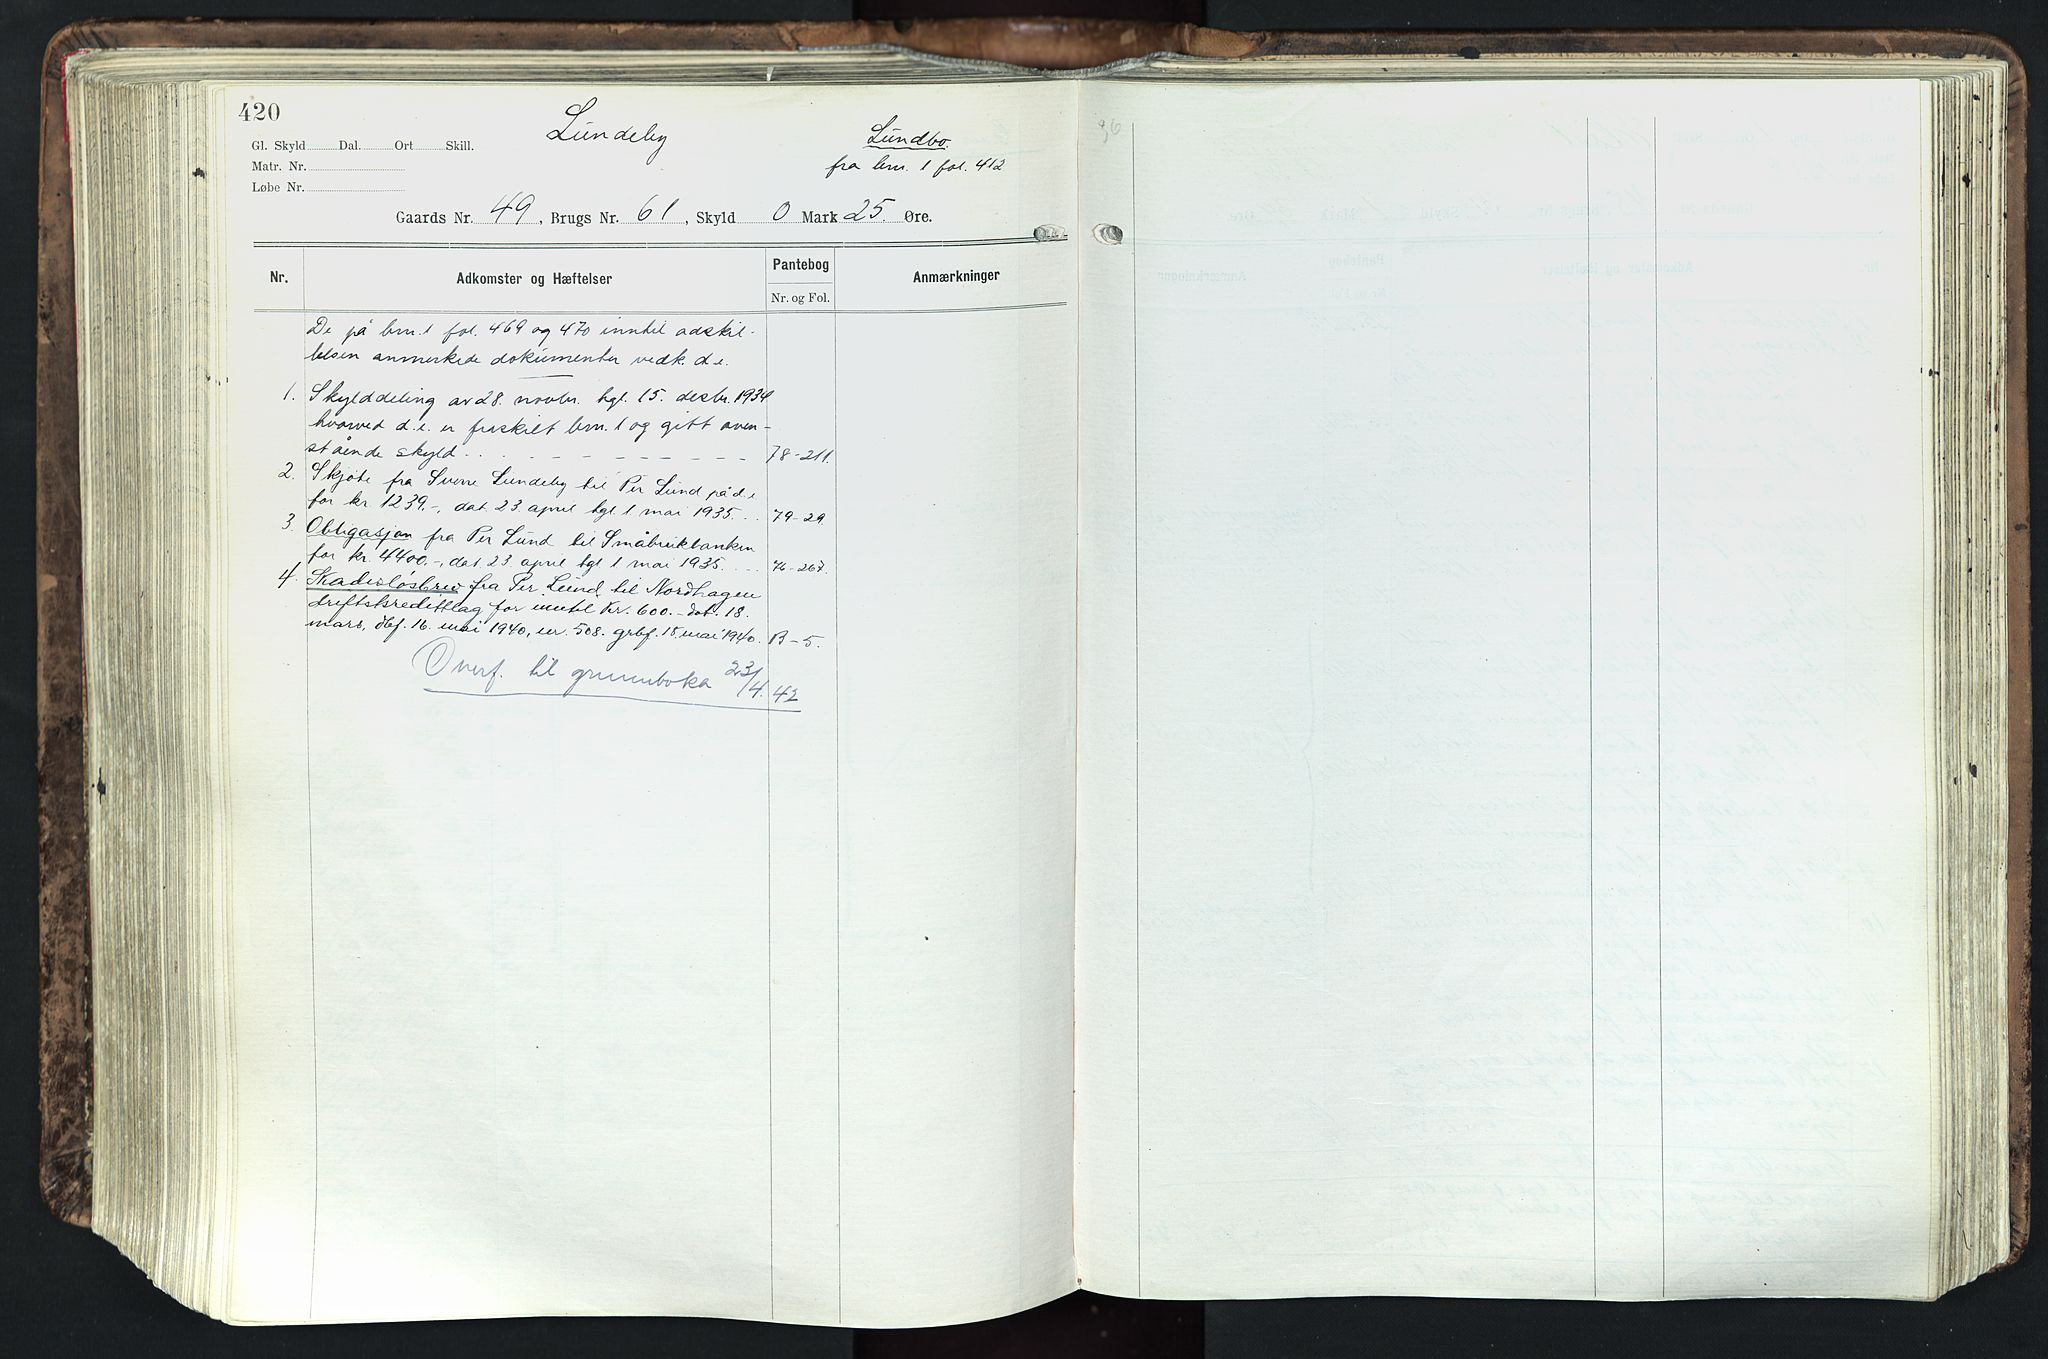 420
Lundeby
Lundbo.
fra brn. 1 fol. 412
Gl. Skyld Dal. Ort Skill.
Matr. Nr.
Løbe Nr.
Gaards Nr. 49, Brugs Nr. 61, Skyld 0 Mark 25. Øre.
Nr. Adkomster og Hæftelser Pantebog Anmærkninger
Nr. og Fol.
De på brn. 1 fol. 469 og 470 inntil adskil-
lelsen anmerkede dokumenter vedk. d.e.
1. Skylddeling av 28. novbr. tgl. 15. desbr. 1934
hvorved d.e. er fraskilt brn. 1 og gitt oven-
stående skyld 78-211.
2. Skjöte fra Sverre Lundeby til Per Lund på d.e
for kr 1239.-, dat. 23. april tgl. 1 mai 1935. 79-29.
3. Obligasjon fra Per Lund til Småbrukbanken
for kr. 4400.-, dat. 23. april tgl. 1 mai 1935. 76-267.
4. Skadesløsbrev fra Per Lund til Nordhagen
driftskredittlag for inntil Kr. 600.- dat. 18.
mars, dbf. 16. mai 1940, nr. 508. grbf. 18. mai 1940. B-5.
Overf. til grunnboka 23/4. 42